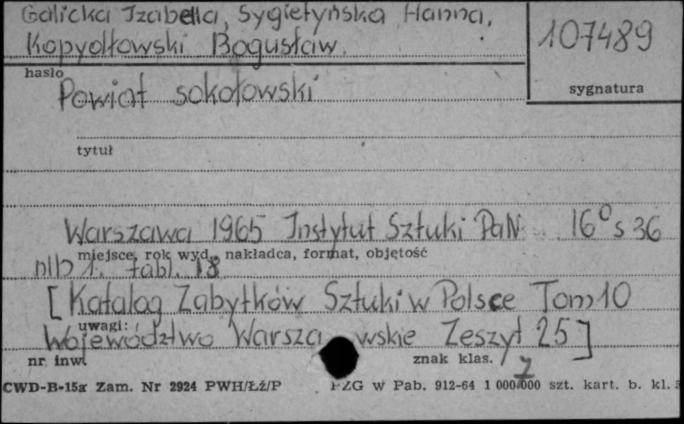 Galicka Izabella, Sygietyńska Hanna,
Kopydłowski Bogusław.
107489
hasło
sygnatura
Powiat sokołowski
tytuł
Warszawa 1965 Instytut Sztuki PaN 16° s 36
miejsce, rok wyd., nakładca, format, objętość
nlb 1. tabl. 18
[Katalog Zabytków Sztuki w Polsce Tom 10
uwagi:
Województwo Warszawskie Zeszyt 25]
nr inw.
znak klas.
CWD-B-15a Zam. Nr 2924 PWH/Łż/P PZG w Pab. 912-64 1 000 000 szt. kart. b. kl.